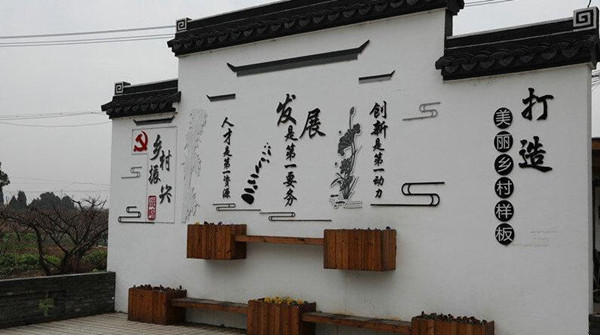 乡村振兴
人才是第一资源
发展
是第一要务
创新是第一动力
打造
美丽乡村样板